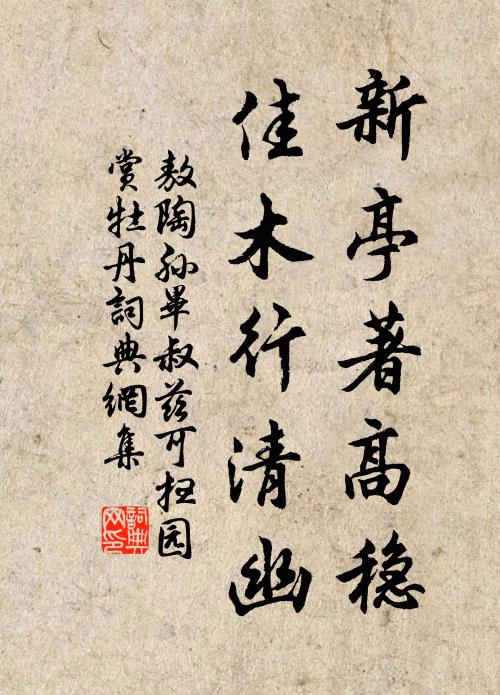 新亭著高稳
佳木行清幽
敖陶孙畢叔兹可抂园
賞牡丹詞典網集
詞典
网印